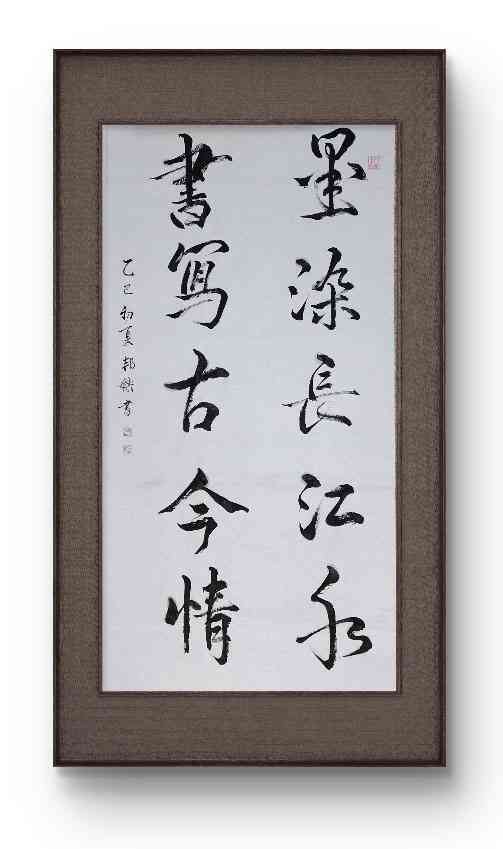 墨染長江水
書寫古今情
乙巳初夏邦書